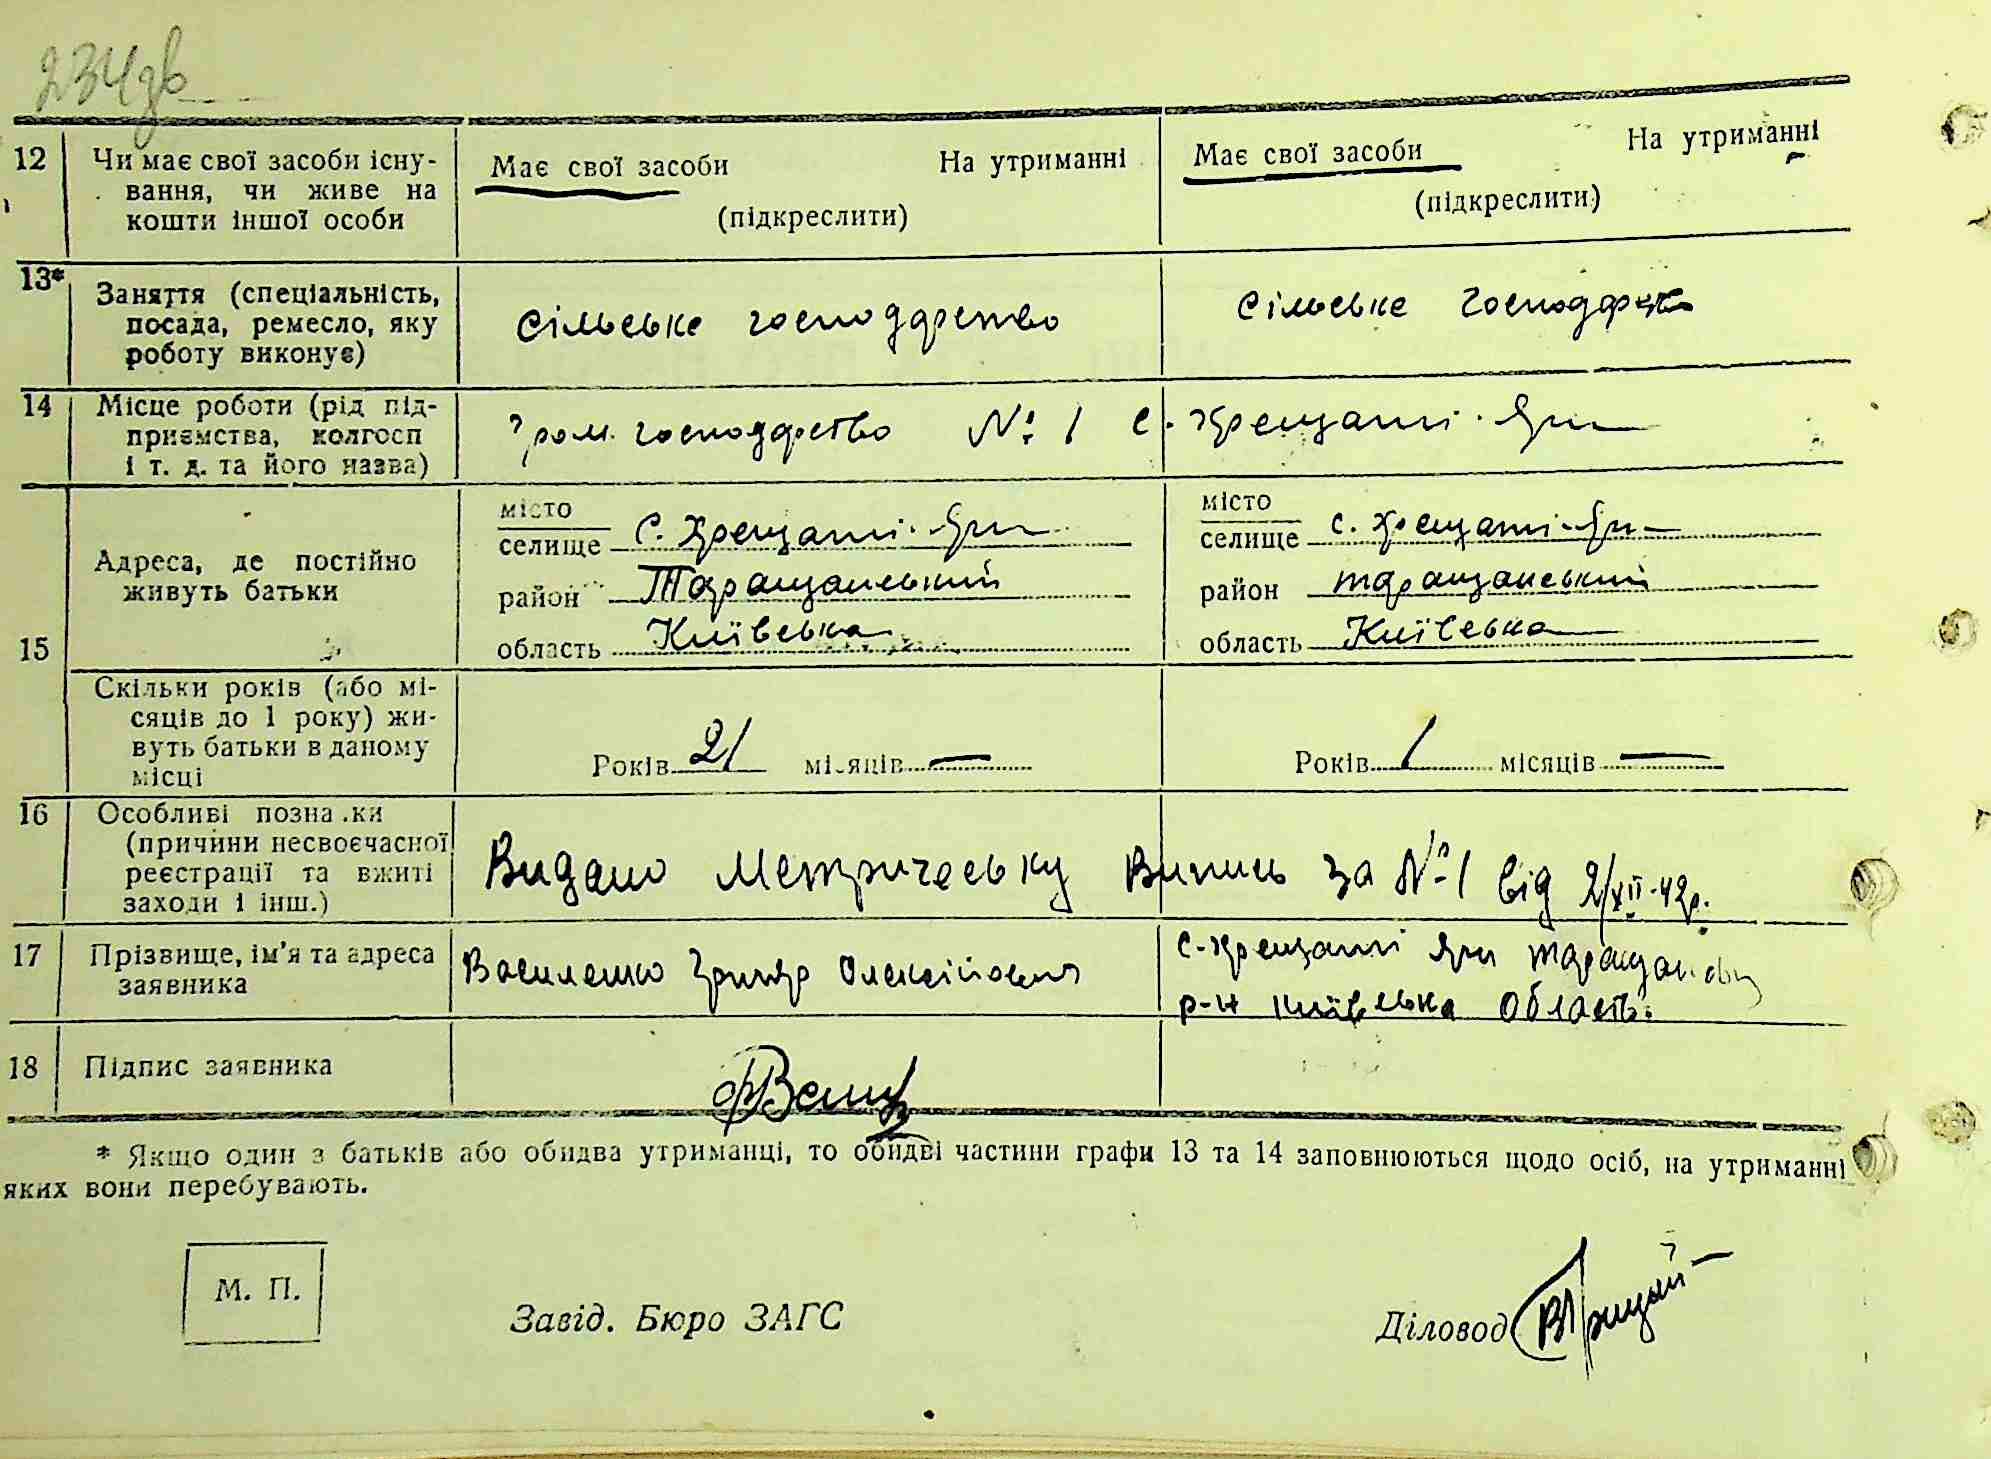 234зв
12 Чи має свої засоби існу-
вання, чи живе на
кошти іншої особи
Має свої засоби На утриманні
(підкреслити)
Має свої засоби На утриманні
(підкреслити)
13* Заняття (спеціальність,
посада, ремесло, яку
роботу виконує)
сільське господарство
сільське господарство
14 Місце роботи (рід під-
приємства, колгосп
і т. д. та його назва)
Гром. господарство № 1 с. Хрещаті-Яри
15
Адреса, де постійно
живуть батьки
місто
селище с. Хрещаті-Яри
район Таращанський
область Київська
місто
селище с. Хрещаті-Яри
район Таращанський
область Київська
Скільки років (або мі-
сяців до 1 року) жи-
вуть батьки в даному
місці
Років 21 місяців —
Років 1 місяців —
16 Особливі познаки
(причини несвоєчасної
реєстрації та вжиті
заходи і інш.)
Видано Метричеську Випись за № 1 від 2/XII-42р.
17 Прізвище, ім'я та адреса
заявника
Василенко Григор Олексійович
с-Хрещаті Яри
р-н Київська Область.
18 Підпис заявника
* Якщо один з батьків або обидва утриманці, то обидві частини графи 13 та 14 заповнюються щодо осіб, на утриманні
яких вони перебувають.
М. П.
Завід. Бюро ЗАГС
Діловод